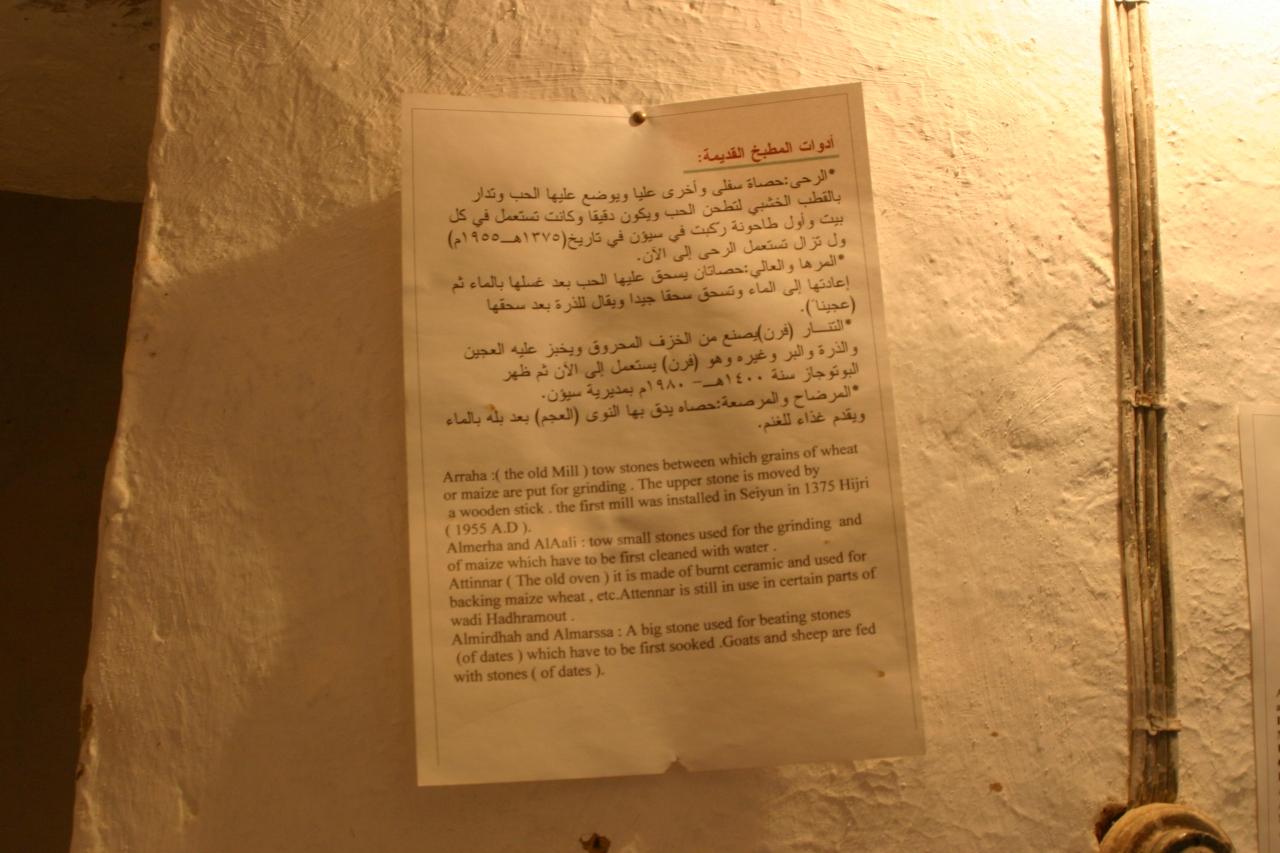 أدوات المطبخ القديمة:
*الرحى:حصاة سفلى وأخرى عليا ويوضع عليها الحب وتدار
بالقطب الخشبي لتطحن الحب ويكون دقيقا وكانت تستعمل في كل
بيت وأول طاحونة ركبت في سيؤن في تاريخ(١٣٧٥هـ_١٩٥٥م)
ول تزال تستعمل الرحى إلى الآن.
*المرها والعالي:حصاتان يسحق عليها الحب بعد غسلها بالماء ثم
إعادتها إلى الماء وتسحق سحقا جيدا ويقال للذرة بعد سحقها
(عجينا ً).
*التنـــار (فرن)يصنع من الخزف المحروق ويخبز عليه العجين
والذرة والبر وغيره وهو (فرن) يستعمل إلى الآن ثم ظهر
البوتوجاز سنة ١٤٠٠هــ– ١٩٨٠م بمديرية سيؤن.
*المرضاح والمرصعة:حصاه يدق بها النوى (العجم) بعد بله بالماء
ويقدم غذاء للغنم.
Arraha :( the old Mill ) tow stones between which grains of wheat
or maize are put for grinding . The upper stone is moved by
a wooden stick . the first mill was installed in Seiyun in 1375 Hijri
( 1955 A.D ).
Almerha and AlAali : tow small stones used for the grinding and
of maize which have to be first cleaned with water .
Attinnar ( The old oven ) it is made of burnt ceramic and used for
backing maize wheat , etc.Attennar is still in use in certain parts of
wadi Hadhramout .
Almirdhah and Almarssa : A big stone used for beating stones
(of dates ) which have to be first sooked .Goats and sheep are fed
with stones ( of dates ).